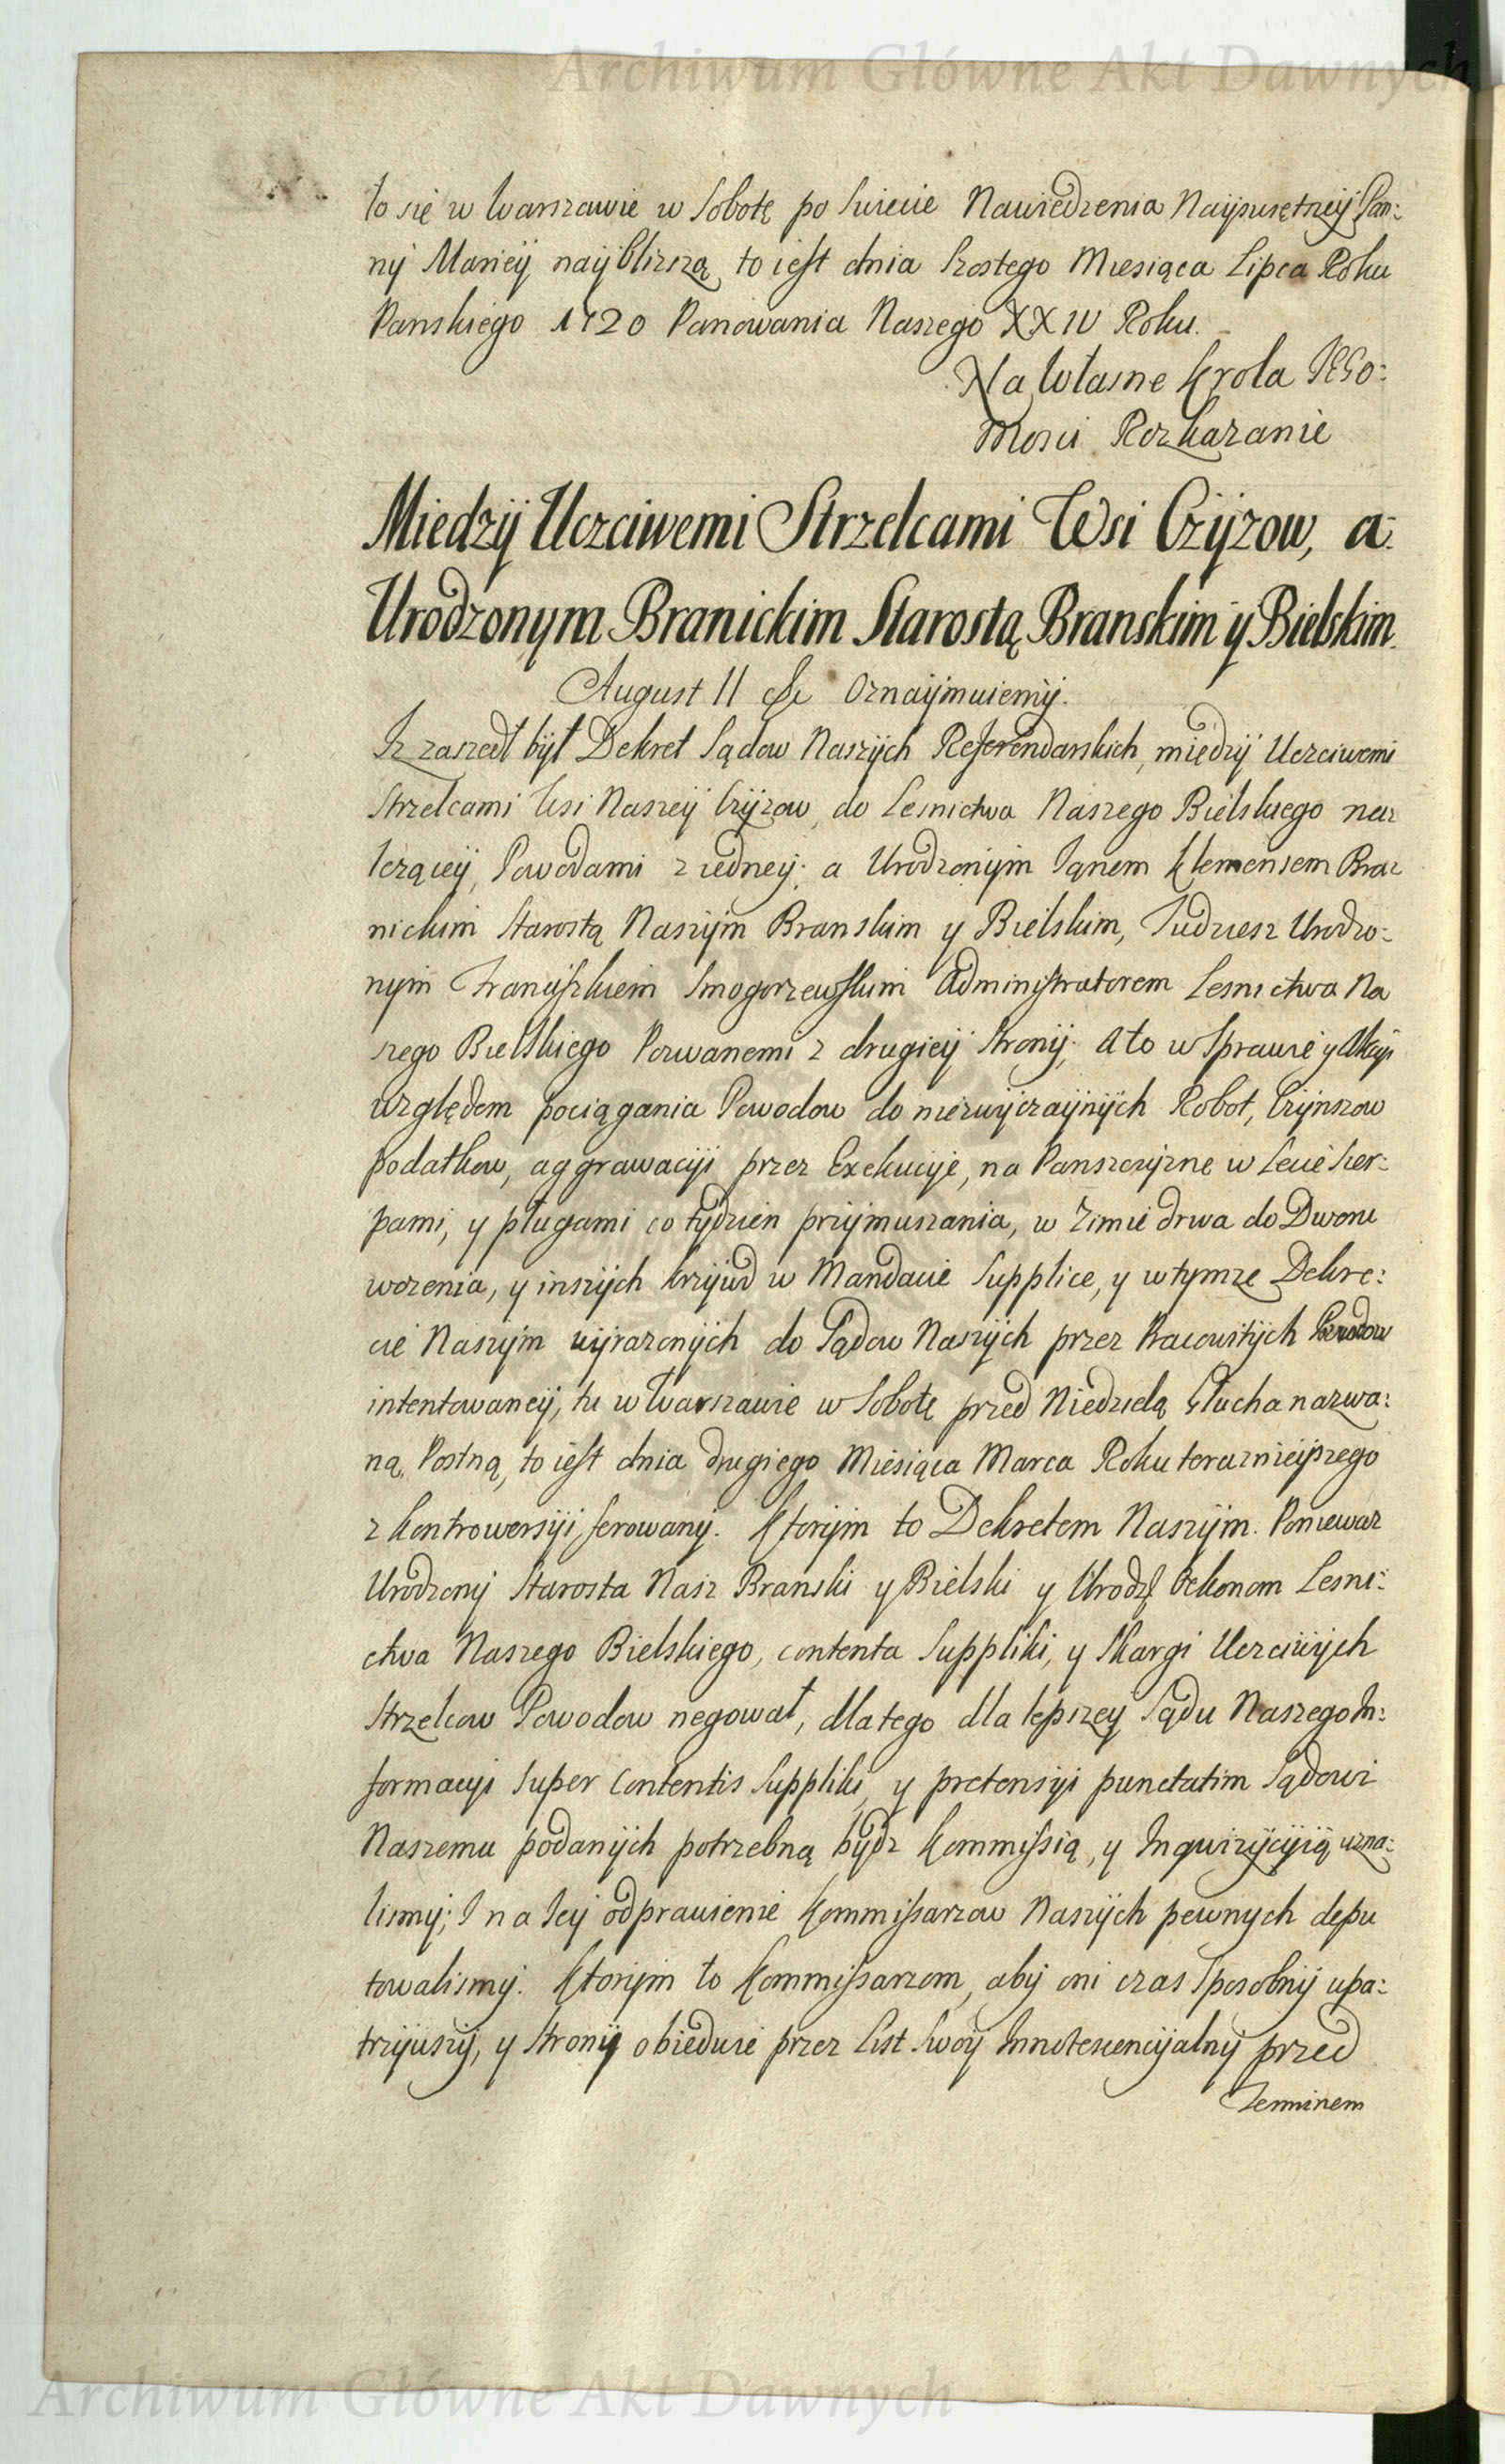 Archiwum Główne Akt Dawnych
to się w Warszawie w Sobotę po Swiecie Nawiedzenia Nayswiętszey Pan:
ny Maryey nayblizszą, to iest dnia Szostego Miesiąca Lipca Roku
Panskiego 1720 Panowania Naszego XXIV Roku.
Na Własne Krola JEGo:
Mosci Rozkazanie
Miedzÿ Uczciwemi Strzelcami Wsi Czÿzow, a:
Urodzonym Branickim Starostą Branskim ÿ Bielskim.
August II &c Oznaÿmuiemÿ.
Iz zaszedł bÿł Dekret Sądow Naszÿch Referendarskich, międzÿ Uczciwemi
Strzelcami Wsi Naszeÿ Czÿzow, do Lesnictwa Naszego Bielskiego na:
leząceÿ, Powodami z iedneÿ; a Urodzonÿm Janem Klemensem Bra:
nickim Starostą Naszÿm Branskim y Bielskim, Tudziesz Urodzo:
nÿm Franciszkiem Smogorzewskim Administratorem Lesnictwa Na
szego Bielskiego Pozwanemi z drugieÿ Stronÿ; A to w Sprawie y Akcÿi
względem pociągania Powodow do niezwÿczaÿnÿch Robot, Czÿnszow
podatkow, aggrawacÿi przez Exekucÿe, na Panszczÿzne w Lecie Sier:
pami, y pługami co tÿdzien przÿmuszania, w Zimie drwa do Dworu
wozenia, y inszÿch krzÿwd w Mandacie Supplice, y w tymze Dekre:
cie Naszÿm wÿrazonÿch do Sądow Naszÿch przez Pracowitÿch Powodow
intentowaneÿ, tu w Warszawie w Sobotę przed Niedzielą Głucha nazwa:
ną, Postną, to iest dnia drugiego Miesiąca Marca Roku teraznieÿszego
z Kontrowersÿi ferowanÿ. Ktorÿm to Dekretem Naszÿm. Poniewaz
Urodzonÿ Starosta Nasz Branski y Bielski y Urodz Oekonom Lesni:
ctwa Naszego Bielskiego, contenta Suppliki, y Skargi Uczciwÿch
Strzelcow Powodow negował, dla tego dla lepszey Sądu Naszego In:
formacyi Super Contentis Suppliki, y pretensÿi punctatim Sądowi
Naszemu podanÿch potrzebną bÿdz Kommissią, y Inqwizÿcÿią uzna:
lismÿ; I na Jeÿ odprawienie Kommissarzow Naszÿch pewnych depu
towalismÿ. Ktorÿm to Kommissarzom, abÿ oni czas Sposobnÿ upa:
trzÿwszÿ, y Stronÿ obiedwie przez List Swoÿ Innotescencÿalnÿ przed
Terminem
Archiwum Główne Akt Dawnych